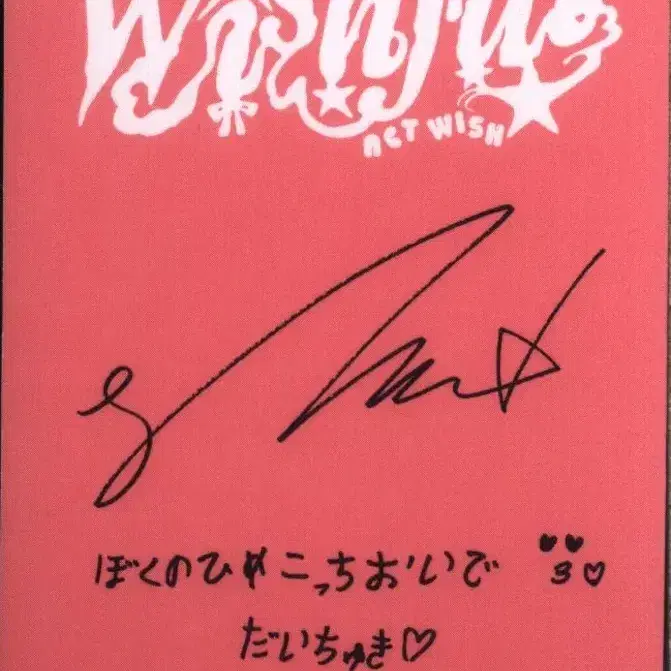 Wishful
NCT WISH
ぼくのひめこっちおいで ♥♥3♡
だいちゅき♡